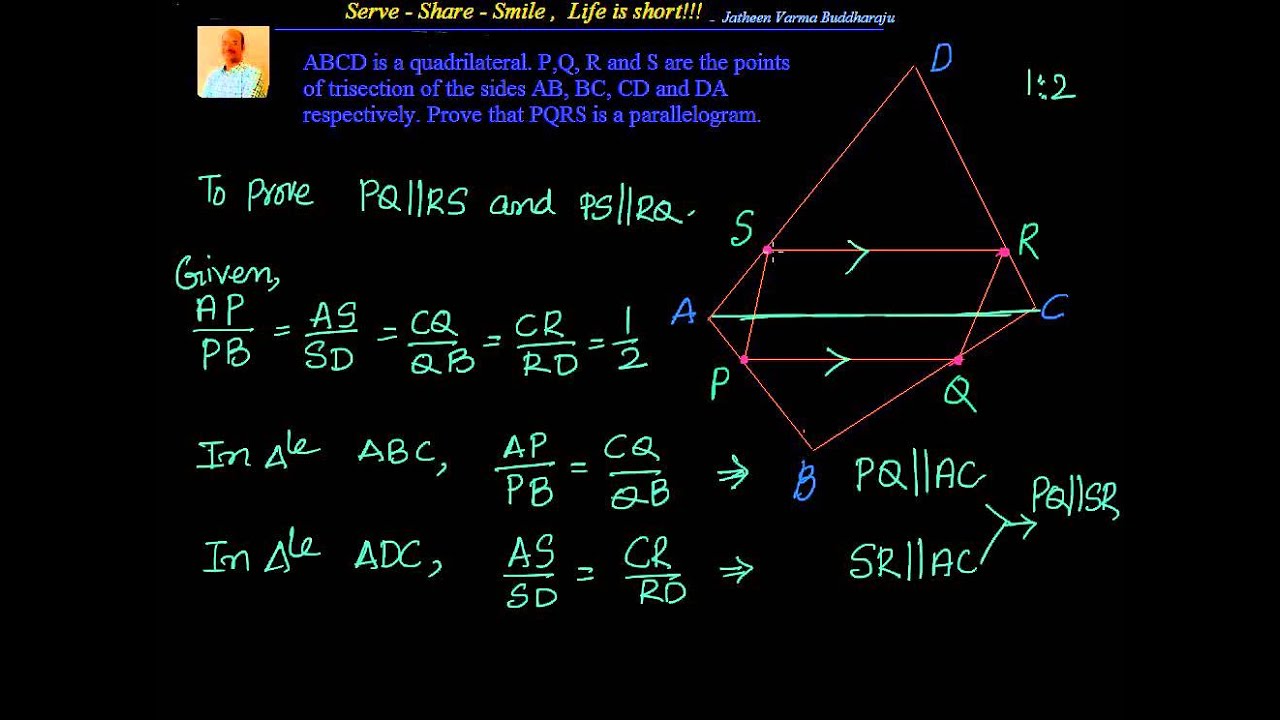 Serve - Share - Smile , Life is short!!! - Jatheen Varma Buddharaju
ABCD is a quadrilateral. P,Q, R and S are the points
of trisection of the sides AB, BC, CD and DA
respectively. Prove that PQRS is a parallelogram.
D
1:2
To Prove PQ||RS and PS||RQ.
S
R
Given,
AP/PB = AS/SD = CQ/QB = CR/RD = 1/2
A
C
P
Q
B
In Δle ABC, AP/PB = CQ/QB ⇒ PQ||AC
PQ||SR
In Δle ADC, AS/SD = CR/RD ⇒ SR||AC